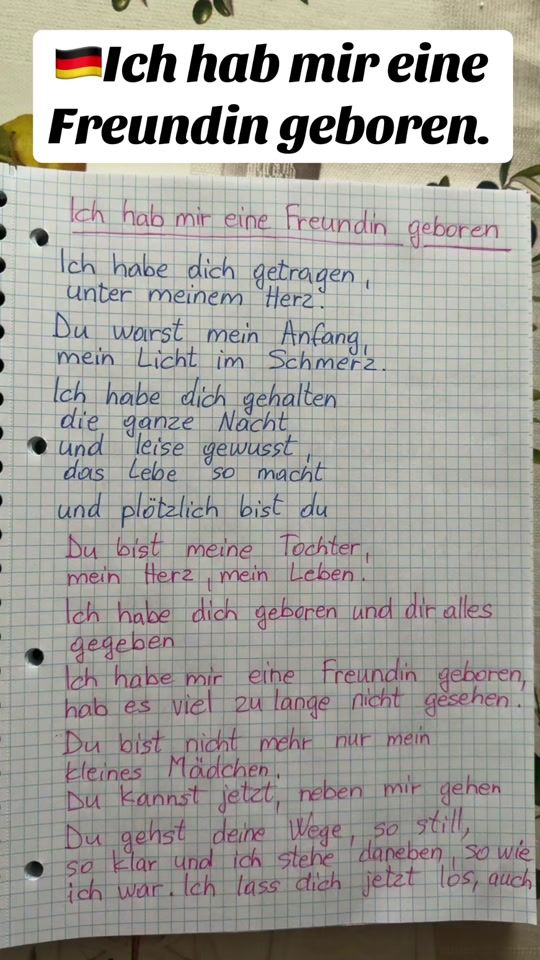 🇩🇪Ich hab mir eine
Freundin geboren.
Ich hab mir eine Freundin geboren
Ich habe dich getragen,
unter meinem Herz.
Du warst mein Anfang,
mein Licht im Schmerz.
Ich habe dich gehalten
die ganze Nacht
und leise gewusst,
das Lebe so macht
und plötzlich bist du
Du bist meine Tochter,
mein Herz, mein Leben.
Ich habe dich geboren und dir alles
gegeben
Ich habe mir eine Freundin geboren,
hab es viel zu lange nicht gesehen.
Du bist nicht mehr nur mein
kleines Mädchen.
Du kannst jetzt, neben mir gehen
Du gehst deine Wege, so still,
so klar und ich stehe daneben, so wie
ich war. Ich lass dich jetzt los, auch